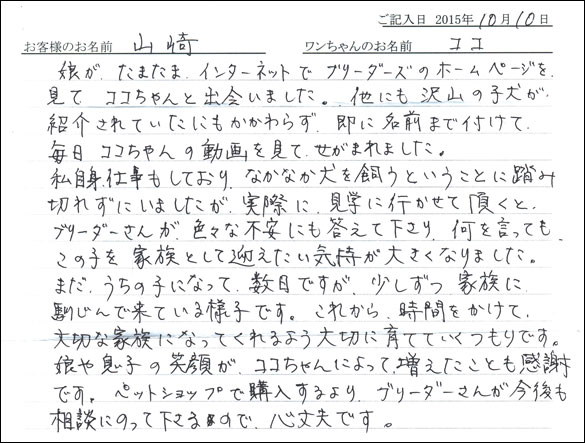 ご記入日 2015年10月10日
お客様のお名前 山崎 ワンちゃんのお名前 ココ
娘が、たまたま、インターネットでブリーダーズのホームページを、
見て、ココちゃんと出会いました。他にも沢山の子犬が、
紹介されていたにもかかわらず、即に名前まで付けて、
毎日ココちゃんの動画を見て、せがまれました。
私自身、仕事もしており、なかなか犬を飼うということに踏み
切れずにいましたが、実際に、見学に行かせて頂くと、
ブリーダーさんが、色々な不安にも答えて下さり、何を言っても、
この子を家族として迎えたい気持が大きくなりました。
まだ、うちの子になって、数日ですが、少しずつ家族に
馴じんで来ている様子です。これから、時間をかけて、
大切な家族になってくれるよう大切に育てていくつもりです。
娘や息子の笑顔が、ココちゃんによって、増えたことも感謝
です。ペットショップで購入するより、ブリーダーさんが今後も
相談にのって下さるので、心丈夫です。